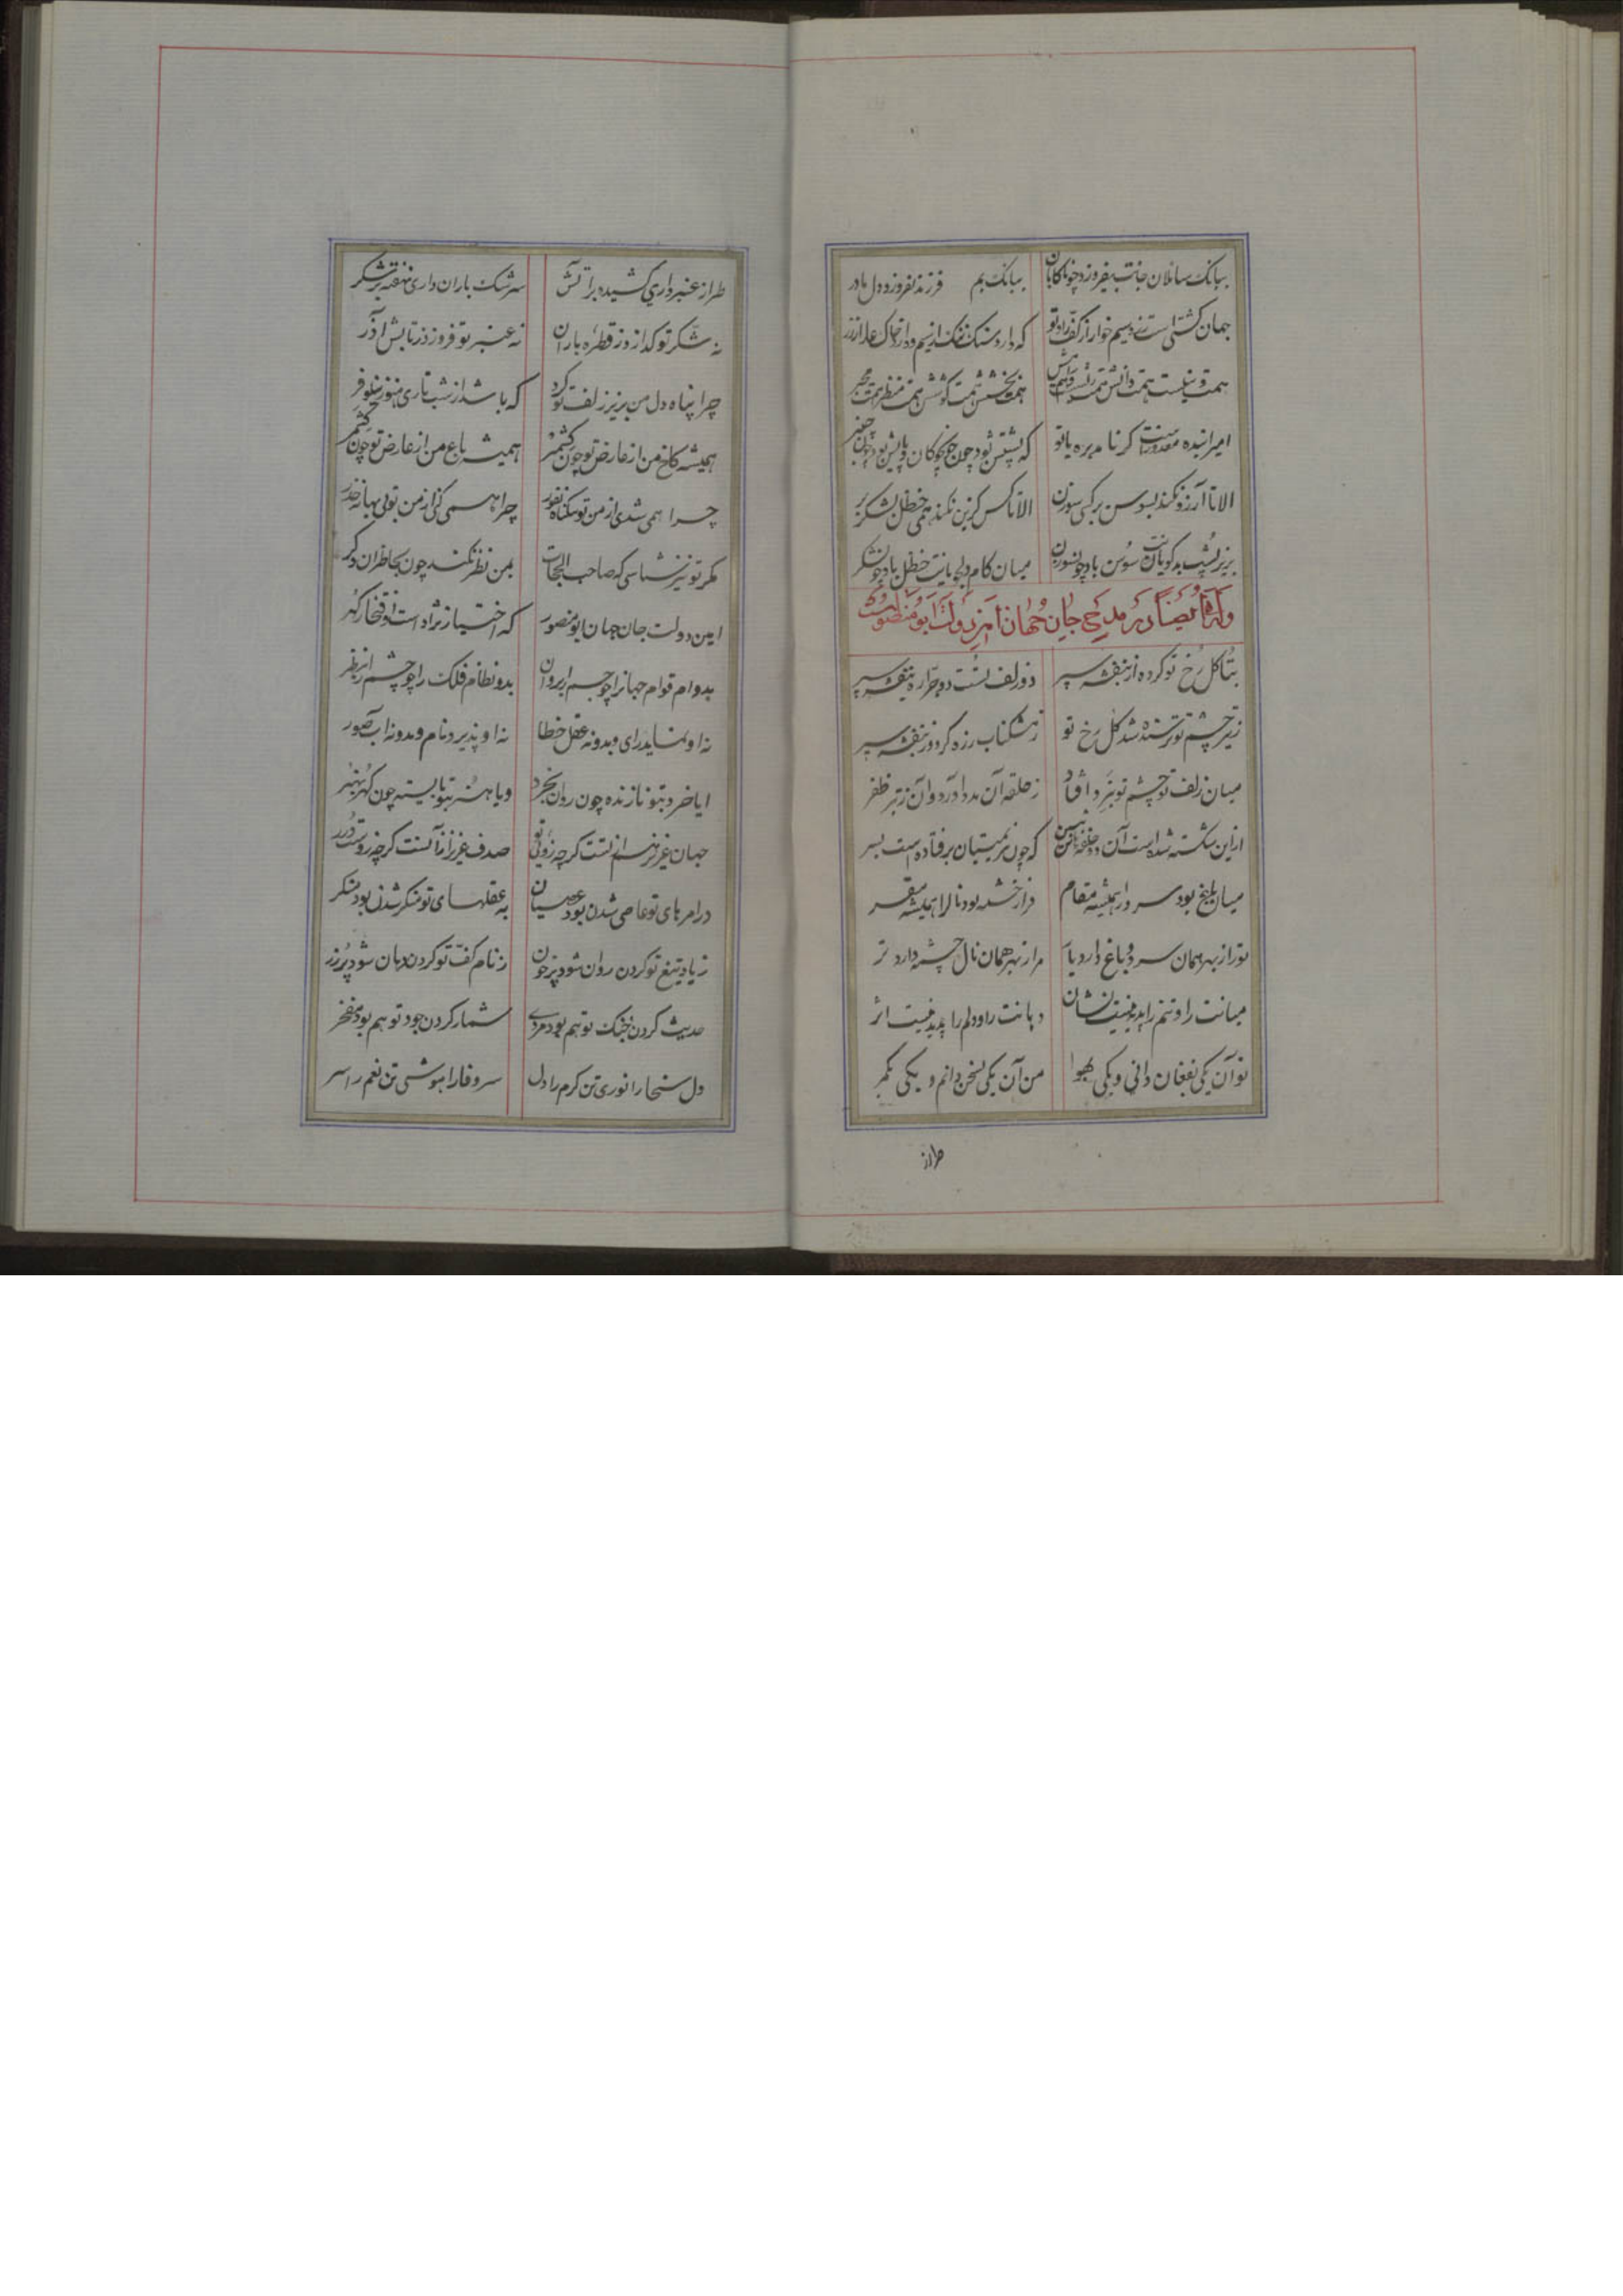 ببانک سائلان جانت بیفروزد چو ناکاهان ببانک بم فرزند نفروزد دل مادر
جهان کشتی است زر و سیم خوار از کف راد تو که دارد سنک ننک از سیم و دارد خاک عار از زر
همت دانش همت بخشش همت کوشش همت منظر همت مخبر
امیرا بنده معذور است کر نامد بره با تو که پشتش بود چون
الا تا آرزو نکند بسوسن بر کسی سوزن الا تا کس کزین نکند همی حنظل بشکر بر
بزیر پشت بدکویانت سوسن باد چون سوزن میان کام بدخواهانت حنظل باد چون شکر
وله ایضا در مدح جان جهان امیر دولت ابومنصور است
بتا کل رخ تو کرده از بنفشه سپر دو زلف تست دو جراره بنفشه سپر
ز تیر چشم تو ترسنده شد کل رخ تو ز مشکناب زره کرد وز بنفشه سپر
میان زلف تو چشم تو نبرد افتاد ز حلقه آن مدد آرد و آن ز تیر ظفر
از این شکسته شده است آن دو زلف که چون نهیبتیان برفتاده است بسر
میان باغ بود سرو را همیشه مقام فراز چشمه بود نال را همیشه مقر
تو را ز بهر همان سرو باغ دارد یار مرا ز بهر همان نال چشمه دارد تر
میانت را و تنم را پدید نیست نشان دهانت را و دلم را پدید نیست اثر
تو آن یکی بفغان دانی و یکی بهوا من آن یکی بسخن دانم و یکی بکمر
طراز
طراز عنبر داری کشیده بر آتش سرشک باران داری نهفته در شکر
نه شکر تو کدازد ز قطره باران نه عنبر تو فروزد ز تابش آذر
چرا پناه دل من بزیر زلف تو کرد که باشد از شب تاری هنوز نیلوفر
همیشه کاخ من از عارض تو چون کشمیر همیشه باغ من از عارض تو چون کشمر
چرا همی شدی از من تو بیکناه نفور چرا همی کنی از من تو بی بهانه حذر
مکر تو نیز شناسی که صاحب الجات بمن نظر نکند چون بخاطران دکر
امین دولت جان جهان ابومنصور که اختیار نژاد است و افتخار کهر
بدو دوام قوام جهان را چو جسم را بروان بدو نظام فلک را چو چشم را بنظر
نه او نماید رای و بدو نه عقل خطا نه او پذیرد نام و بدو نه آب صور
ایا خرد بتو نازنده چون روان بخرد و یا هنر بتو بایسته چون کهر بهنر
جهان عزیز از تست کرچه زوئی تو صدف عزیز ز در است کرچه زوست درر
در امرهای تو عاصی شدن بود عصیان به عقلهای تو منکر شدن بود منکر
ز یاد تیغ تو کردن روان شود پر خون ز نام کف تو کردن دهان شود پر زر
حدیث کردن جنک تو هم بود مردی شمار کردن جود تو هم بود مفخر
دل سخا را نوری تن کرم را دل سر وفا را هوشی تن نعم را سر